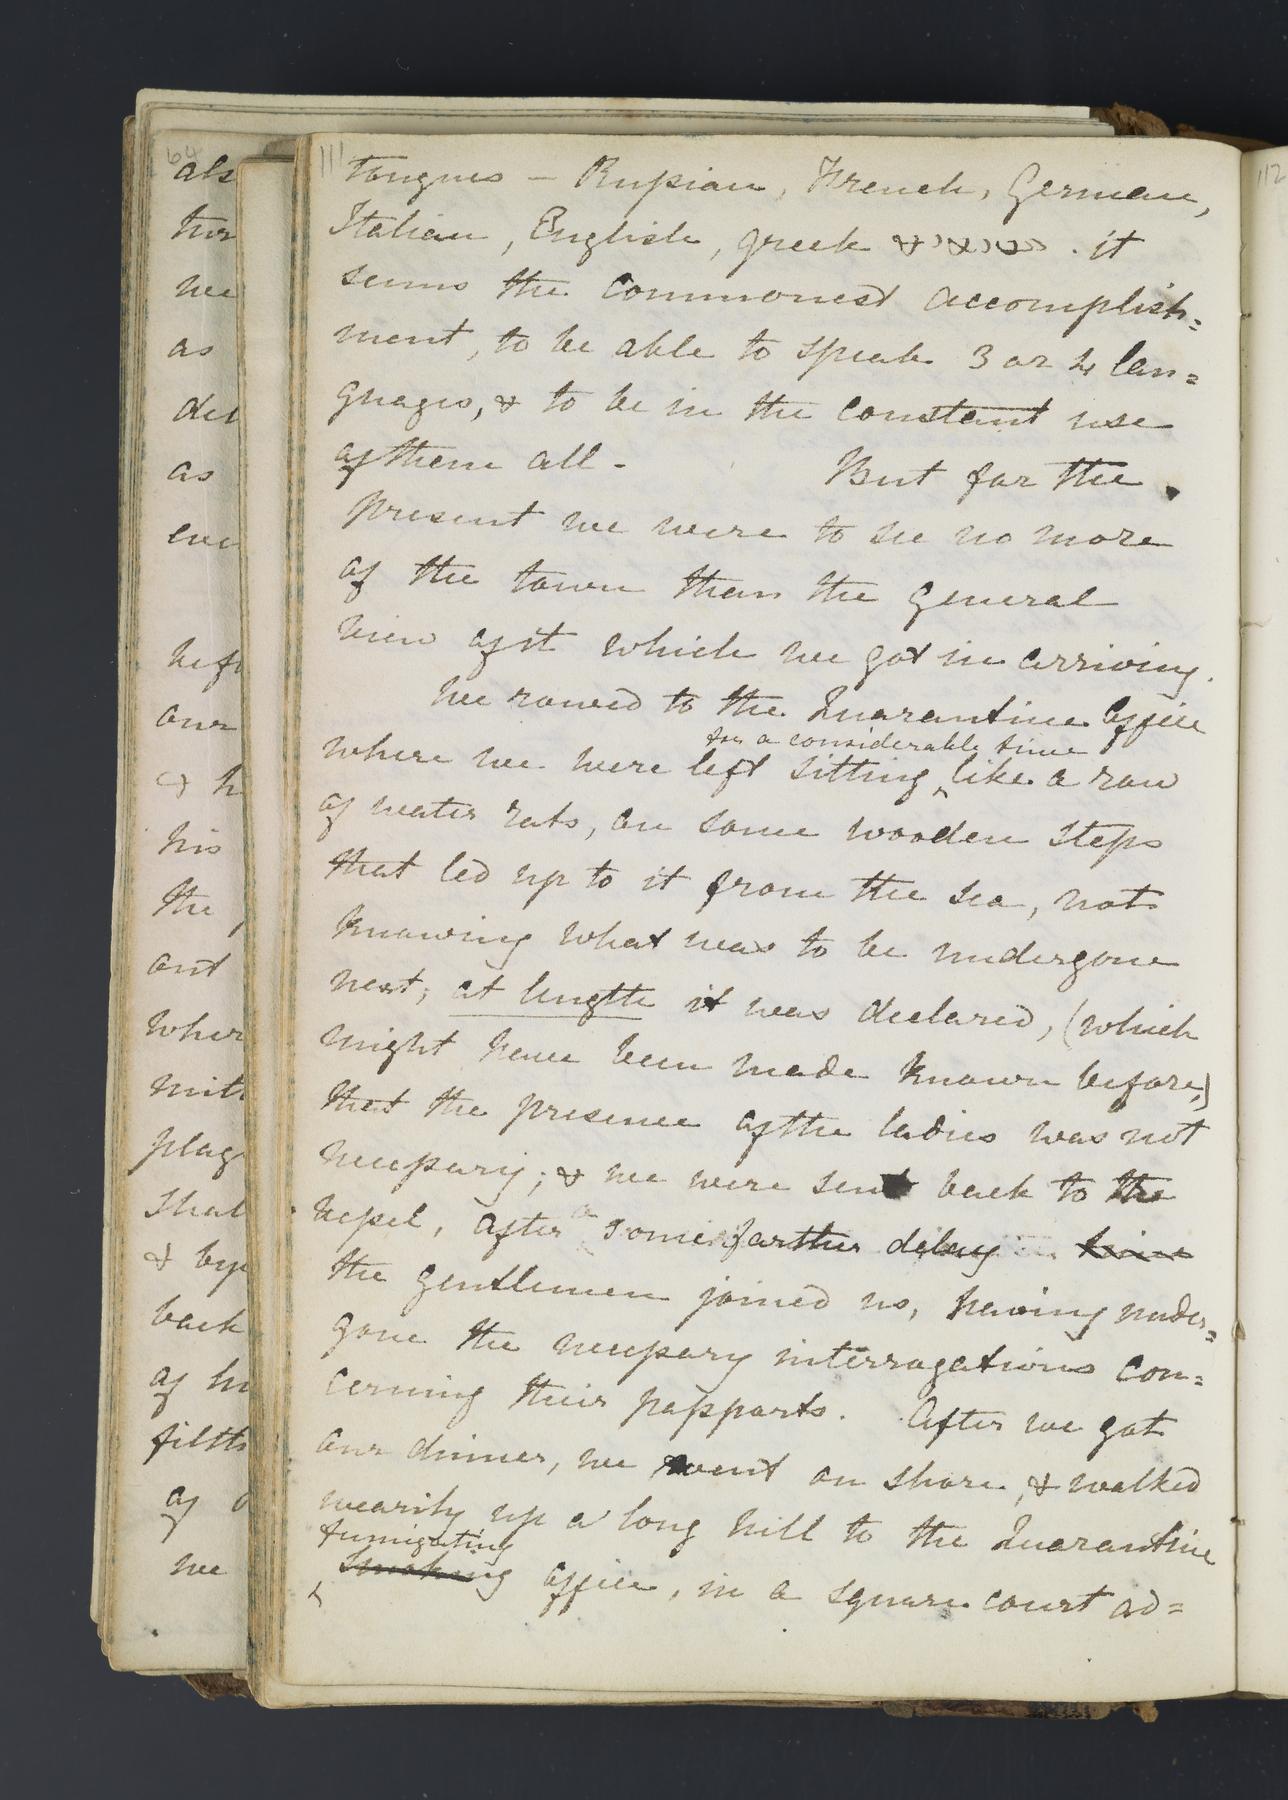 111
tongues — Russian, French, German,
Italian, English, Greek &c &c &c . it
seems the commonest accomplish=
ment, to be able to speak 3 or 4 lan=
guages, & to be in the constant use
of them all - But for the
present we were to see no more
of the town than the general
view of it which we got in arriving.
We rowed to the Quarantine office
for a considerable time
where we were left sitting ‸ like a row
of water rats, on some wooden steps
that led up to it from the sea, not
knowing what was to be undergone
next; at length it was declared, (which
might have been made known before,)
that the presence of the ladies was not
necessary; & we were sent back to the
vessel, after some farther delay
the gentlemen joined us, having under=
gone the necessary interrogations con=
cerning their passports. After we got
our dinner, we went on shore, & walked
wearily up a long hill to the Quarantine
fumigating
‸ Smoking office, in a square court ad=
64
als
we
as
as
our
& h
his
the
and
wher
plag
& by
back
of hi
filth
of
we
112